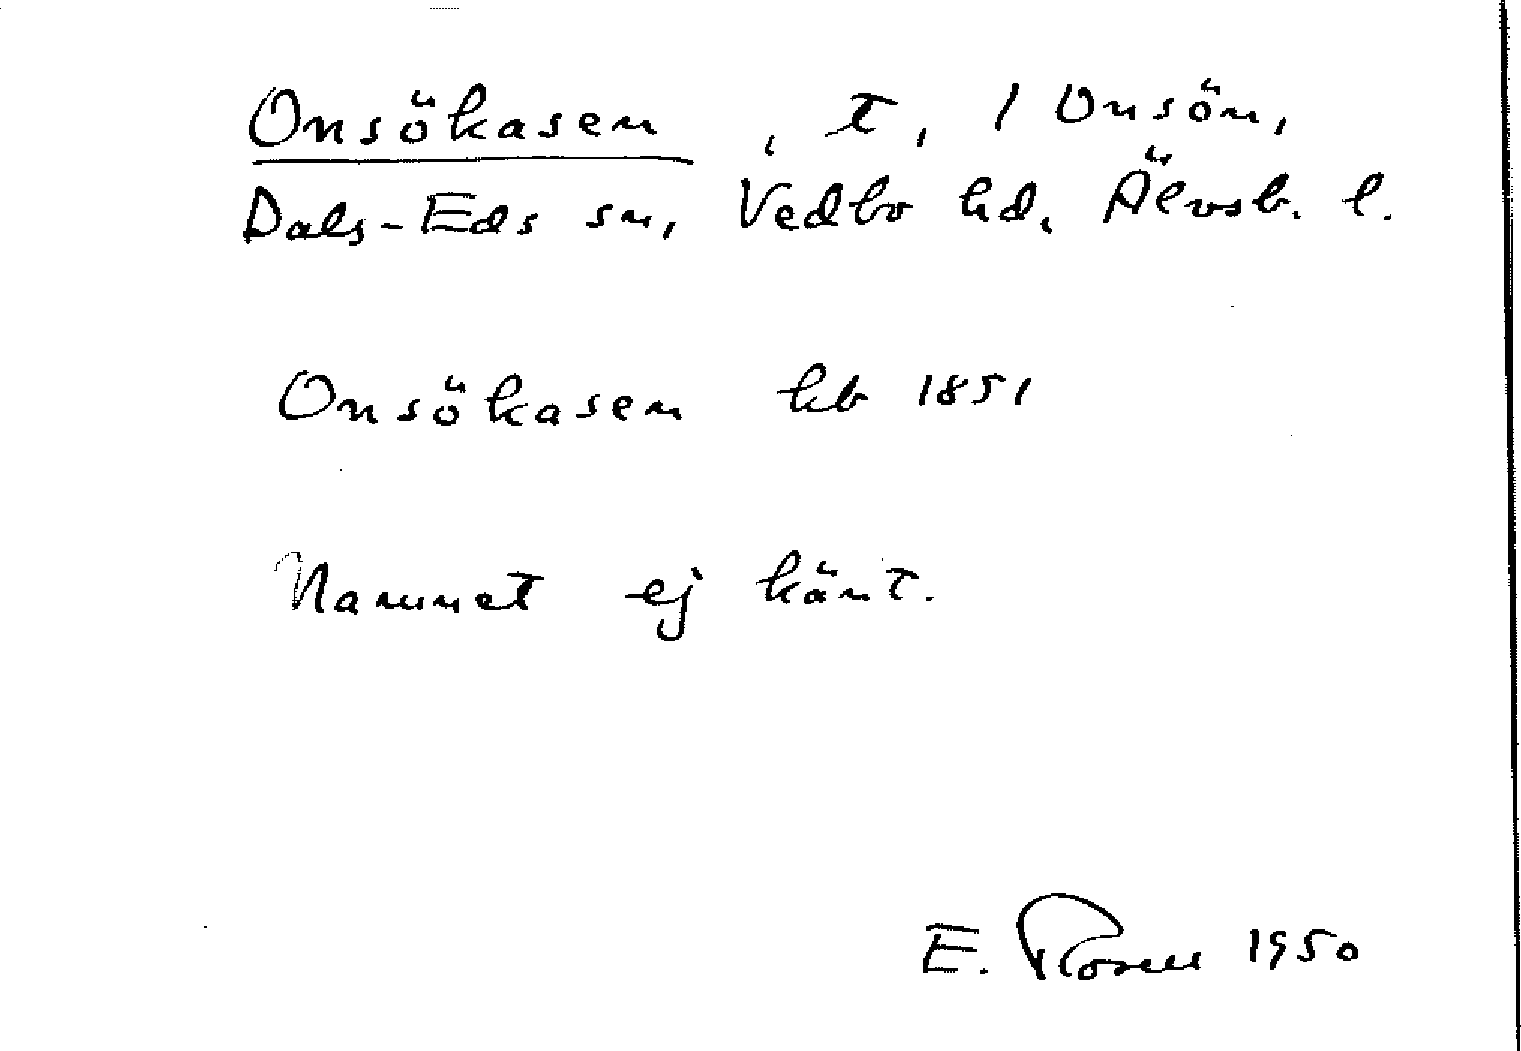 Onsökasen, t, 1 Onsön,
Dals-Eds sn, Vedbo hd, Älvsb. l.
Onsökasen hb 1851
Namnet ej känt.
E. 1950